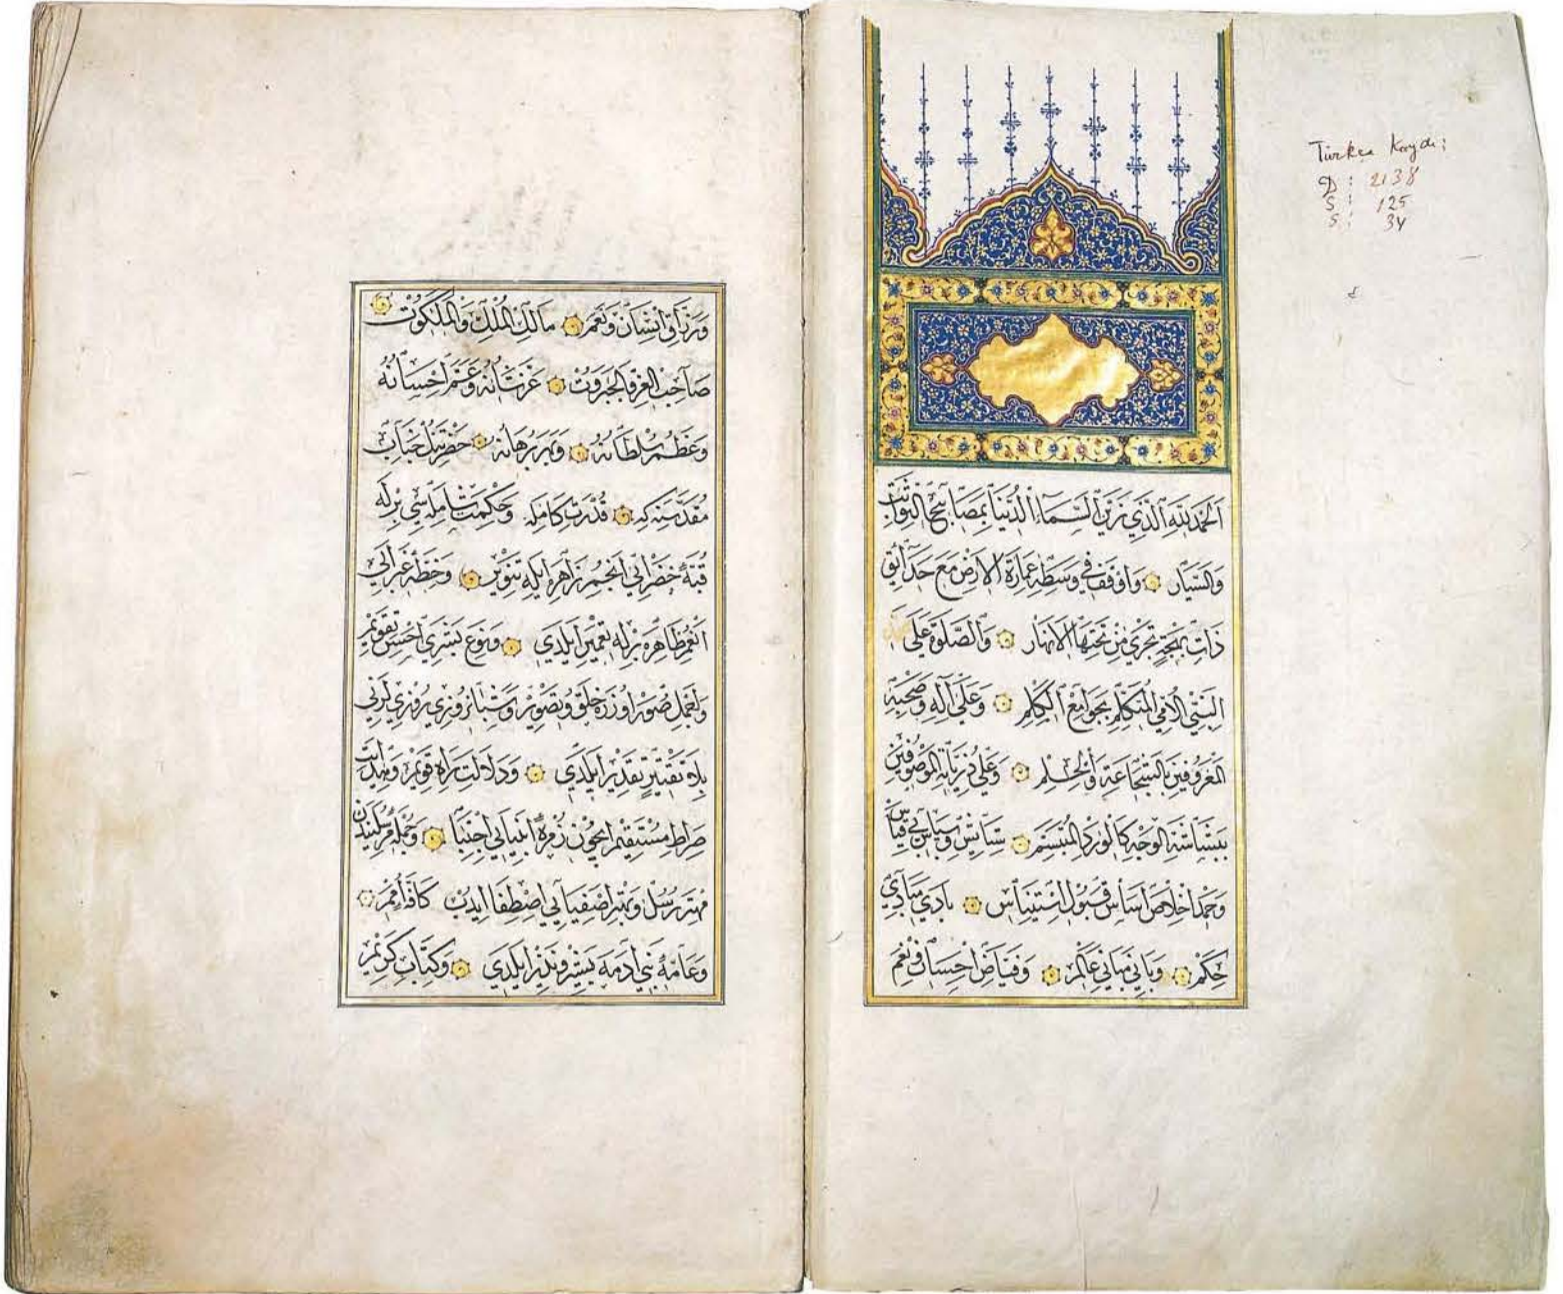 Türkçe Kaydı:
D: 2138
S: 125
S: 34
الحمد لله الذي زين السماء الدنيا بمصابيح الثوابت
والسيار في وسطه عمارة الارض مع حدائق
ذات بهجة تجري من تحتها الانهار والصلوة على
النبي الامي المتكلم بجوامع الكلم وعلى آله وصحبه
المعروفين بالشجاعة والحلم وعلى ذرياته الموصوفين
ببشاشة الوجه كالورد المبتسم ستايش وسپاس بي قياس
وحمد اخلاص اساس قبول استيناس بادي مبادي
حكم وباني مباني عالم وفياض احسان ونعم
ورزاق انسان ونعم مالك الملك والملكوت
صاحب العزة والجبروت عز شانه وعم احسانه
وعظم سلطانه وبهر برهانه حضرتلري جناب
مقدسنه كه قدرت كامله وحكمت شامله سي برله
قبۀ خضرايي انجم زاهره ايله تنوير وخطۀ غبرايي
انعم ظاهره برله تعمير ايلدي ونوع بشري احسن تقويم
واجمل صور اوزره خلق وتصوير وشبانروزي روزيلريني
بلا تقتير تقدير ايلدي ودلالت راه قويم وهدايت
صراط مستقيم ايچون زمرۀ انبيايي اجتبا وجمله مرسليندن
مهتر رسل وبهتر اصفيايي اصطفا ايدوب كافۀ امم
وعامۀ بني آدمه بشير ونذير ايلدي وكتاب كريم